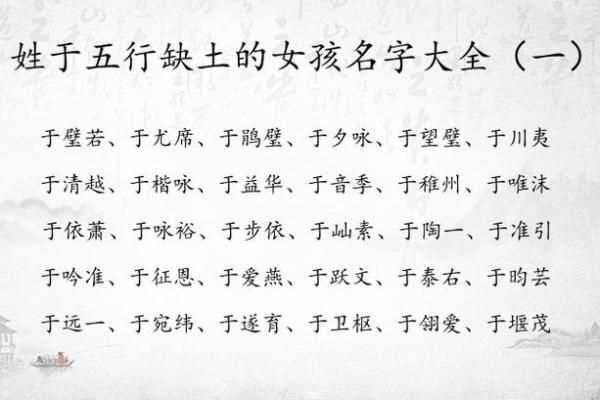 姓于五行缺土的女孩名字大全（一）
于璧若、于尤席、于鹃璧、于夕咏、于望璧、于川夷
于清越、于楷咏、于益华、于音季、于稚州、于唯沫
于依萧、于咏裕、于步依、于屾素、于陶一、于准引
于吟准、于征恩、于爱燕、于跃文、于泰右、于昀芸
于远一、于宛纬、于遂育、于卫枢、于翎爱、于堰茂